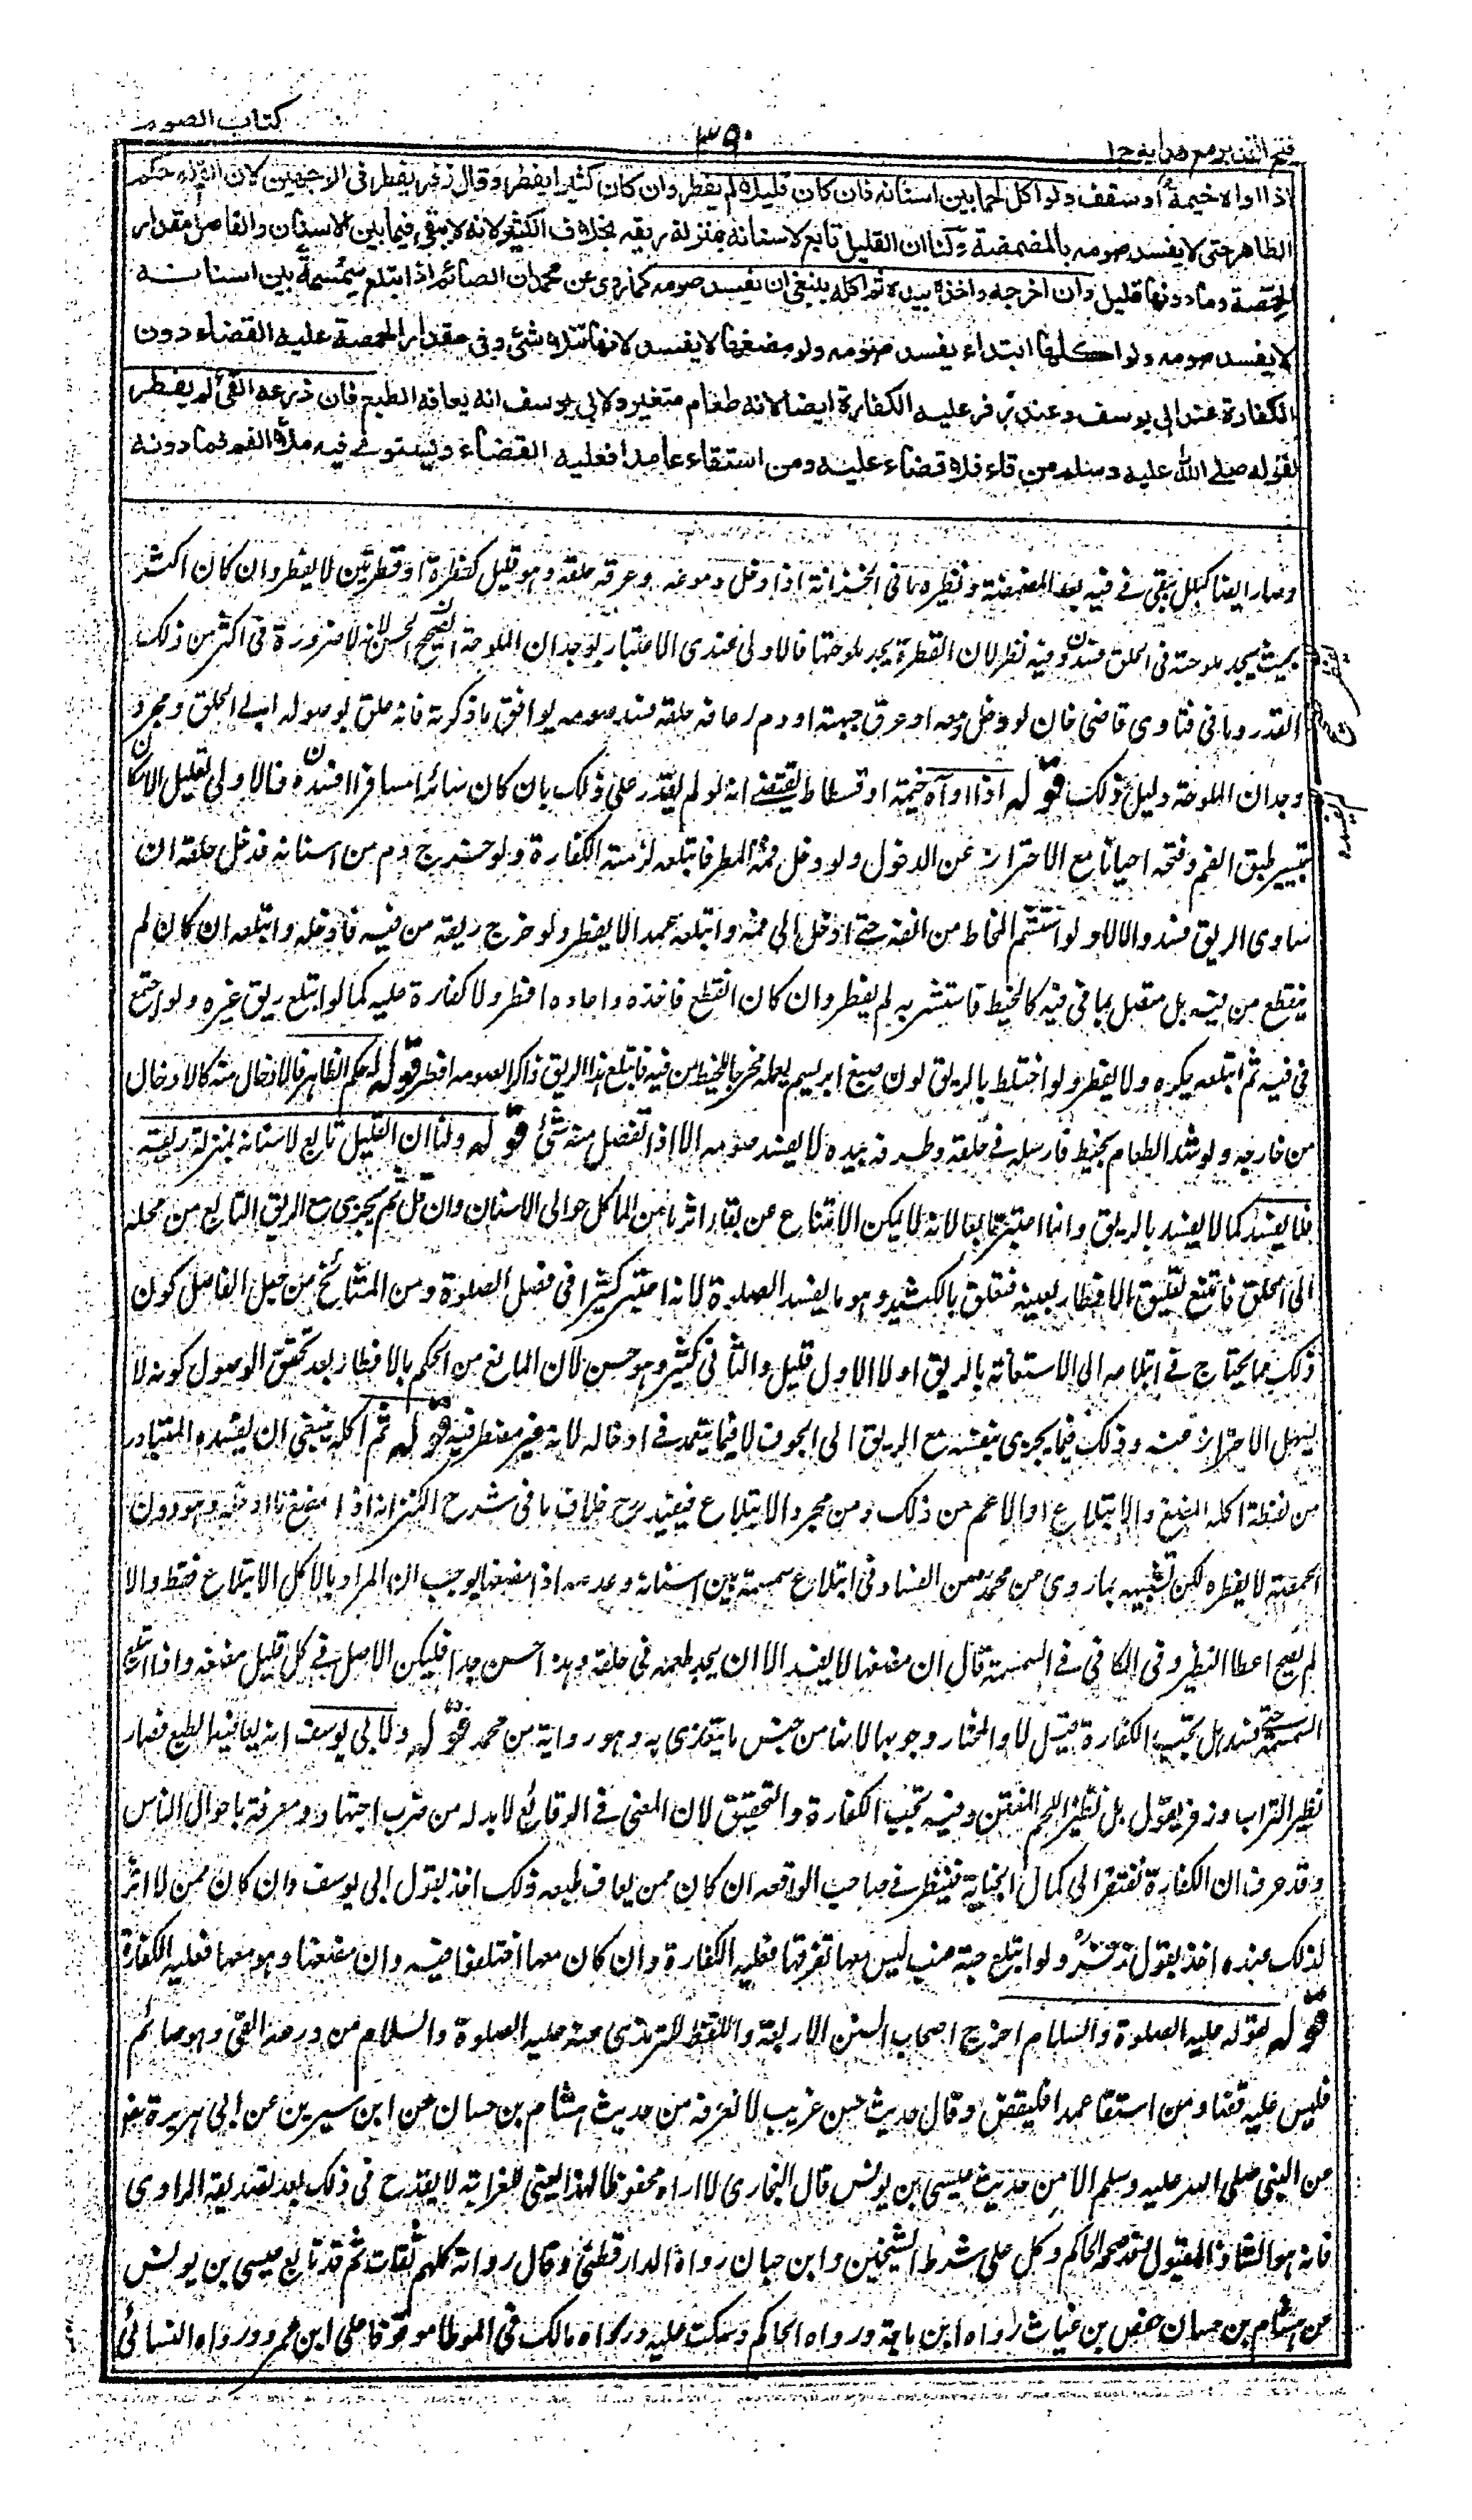 كتاب الصوم
٣٥٠
فتح القدير مع هدايه ج ١
اذا اواه خيمة أو سقف ولو اكل لحما بين اسنانه فان كان قليلا لم يفطر وان كان كثيرا يفطر وقال زفر يفطر فى الوجهين لان الفم له حكم
الظاهر حتى لا يفسد صومه بالمضمضة ولنا ان القليل تابع لاسنانه بمنزلة ريقه بخلاف الكثير لانه لا يبقى فيما بين الاسنان والفاصل مقدار
الحمصة وما دونها قليل وان اخرجه واخذه بيده ثم اكله ينبغى ان يفسد صومه كما روى عن محمد ان الصائم اذا ابتلع سمسمة بين اسنانه
لا يفسد صومه ولو اكلها ابتداء يفسد صومه ولو مضغها لا يفسد لانها تتلاشى وفى مقدار الحمصة عليه القضاء دون
الكفارة عند ابى يوسف وعند زفر عليه الكفارة ايضا لانه طعام متغير ولابى يوسف انه يعافه الطبع فان ذرعه القئ لم يفطر
لقوله صلى الله عليه وسلم من قاء فلا قضاء عليه ومن استقاء عامدا فعليه القضاء ويستوى فيه ملأ الفم فما دونه
وصار ايضا كبلل يبقى فى فيه بعد المضمضة ونظيره ما فى الخزانة اذا دخل دموعه وعرقه حلقه وهو قليل كقطرة او قطرتين لا يفطر وان كان اكثر
بحيث يجد ملوحته فى الحلق فسد وفيه نظر لان القطرة يجد ملوحتها فالاولى عندى الاعتبار بوجدان الملوحة الصحيح الحس لانه لا ضرورة فى اكثر من ذلك
القدر وما فى فتاوى قاضى خان لو دخل دمعه او عرق جبهته او دم رعافه حلقه فسد صومه يوافق ما ذكرته فانه علق بوصوله الى الحلق ومجرد
وجدان الملوحة دليل ذلك قوله اذا اواه خيمة او فسطاط يقتضى انه لو لم يقدر على ذلك بان كان سائرا مسافرا افسده فالاولى تعليل الامكان
بتيسير طبق الفم وفتحه احيانا مع الاحتراز عن الدخول ولو دخل فمه المطر فابتلعه لزمته الكفارة ولو خرج دم من اسنانه فدخل حلقه ان
ساوى الريق فسد والا لا ولو استشم المخاط من انفه حتى ادخل الى فمه وابتلعه عمدا لا يفطر ولو خرج ريقه من فيه فادخله وابتلعه ان كان لم
ينقطع من فيه بل متصل بما فى فيه كالخيط فاستشربه لم يفطر وان كان انقطع فاخذه واعاده افطر ولا كفارة عليه كما لو ابتلع ريق غيره ولو اجتمع
فى فيه ثم ابتلعه يكره ولا يفطر ولو اختلط بالريق لون صبغ ابريسم يعمله مخرجا للخيط من فيه فابتلع هذا الريق ذاكرا لصومه افطر قوله له حكم الظاهر فالادخال منه كالادخال
من خارجه ولو شد الطعام بخيط فارسله فى حلقه وطرفه بيده لا يفسد صومه الا اذا انفصل منه شئ قوله ولنا ان القليل تابع لاسنانه بمنزلة ريقه
فلا يفسد كما لا يفسد بالريق وانما اعتبر تابعا لانه لا يمكن الامتناع عن بقاء اثر ما من المأكل حوالى الاسنان وان قل ثم يجرى مع الريق التابع من محله
الى الحلق فامتنع تعليق الافطار بعينه فعلق بالكثير وهو ما يفسد الصلوة لانه اعتبر كثيرا فى فصل الصلوة ومن المشائخ من جعل الفاصل كون
ذلك مما يحتاج فى ابتلاعه الى الاستعانة بالريق اولا الاول قليل والثانى كثير وهو حسن لان المانع من الحكم بالافطار بعد تحقق الوصول كونه لا
يسهل الاحتراز عنه وذلك فيما يجرى بنفسه مع الريق الى الجوف لا فيما يتعمد فى ادخاله لانه غير مضطر فيه قوله ثم اكله ينبغى ان يفسده المتبادر
من لفظة اكله المضغ والابتلاع او الاعم من ذلك ومن مجرد الابتلاع فيفيد ح خلاف ما فى شرح الكنز انه اذا مضغ ما ادخله وهو دون
الحمصة لا يفطره لكن تشبيهه بما روى عن محمد من الفساد فى ابتلاع سمسمة بين اسنانه وعدمه اذا مضغها يوجب ان المراد بالاكل الابتلاع فقط والا
لم يصح اعطاء النظير وفى الكافى فى السمسمة قال ان مضغها لا يفسد الا ان يجد طعمه فى حلقه وهذا حسن جدا فليكن الاصل فى كل قليل مضغه واذا ابتلع
السمسمة حتى فسد هل تجب الكفارة قيل لا والمختار وجوبها لانها من جنس ما يتغذى به وهو رواية عن محمد قوله ولابى يوسف انه يعافه الطبع فصار
نظير التراب وزفر يقول بل نظير اللحم المنتن وفيه تجب الكفارة والتحقيق ان المفتى فى الوقائع لا بد له من ضرب اجتهاد ومعرفة باحوال الناس
وقد عرف ان الكفارة تفتقر الى كمال الجناية فينظر فى صاحب الواقعه ان كان ممن يعاف طبعه ذلك اخذ بقول ابى يوسف وان كان ممن لا اثر
لذلك عنده اخذ بقول زفر ولو ابتلع حبة عنب ليس معها تفرقها فعليه الكفارة وان كان معها اختلفوا فيه وان مضغها وهو معها فعليه الكفارة
قوله لقوله عليه الصلوة والسلام اخرج اصحاب السنن الاربعة واللفظ للترمذى عنه عليه الصلوة والسلام من ذرعه القئ وهو صائم
فليس عليه قضاء ومن استقاء عمدا فليقض وقال حديث حسن غريب لا نعرفه من حديث هشام بن حسان عن ابن سيرين عن ابى هريرة رض
عن النبى صلى الله عليه وسلم الا من حديث عيسى بن يونس قال البخارى لا اراه محفوظا لهذا يعنى للغرابة لا يقدح فى ذلك بعد تصديقه الراوى
فانه هو الشاذ المقبول فقد صححه الحاكم وكل على شرط الشيخين وابن حبان رواه الدارقطنى وقال رواته كلهم ثقات ثم قد تابع عيسى بن يونس
عن هشام بن حسان حفص بن غياث رواه ابن ماجة ورواه الحاكم وسكت عليه ورواه مالك فى الموطأ موقوفا على ابن عمر ورواه النسائى